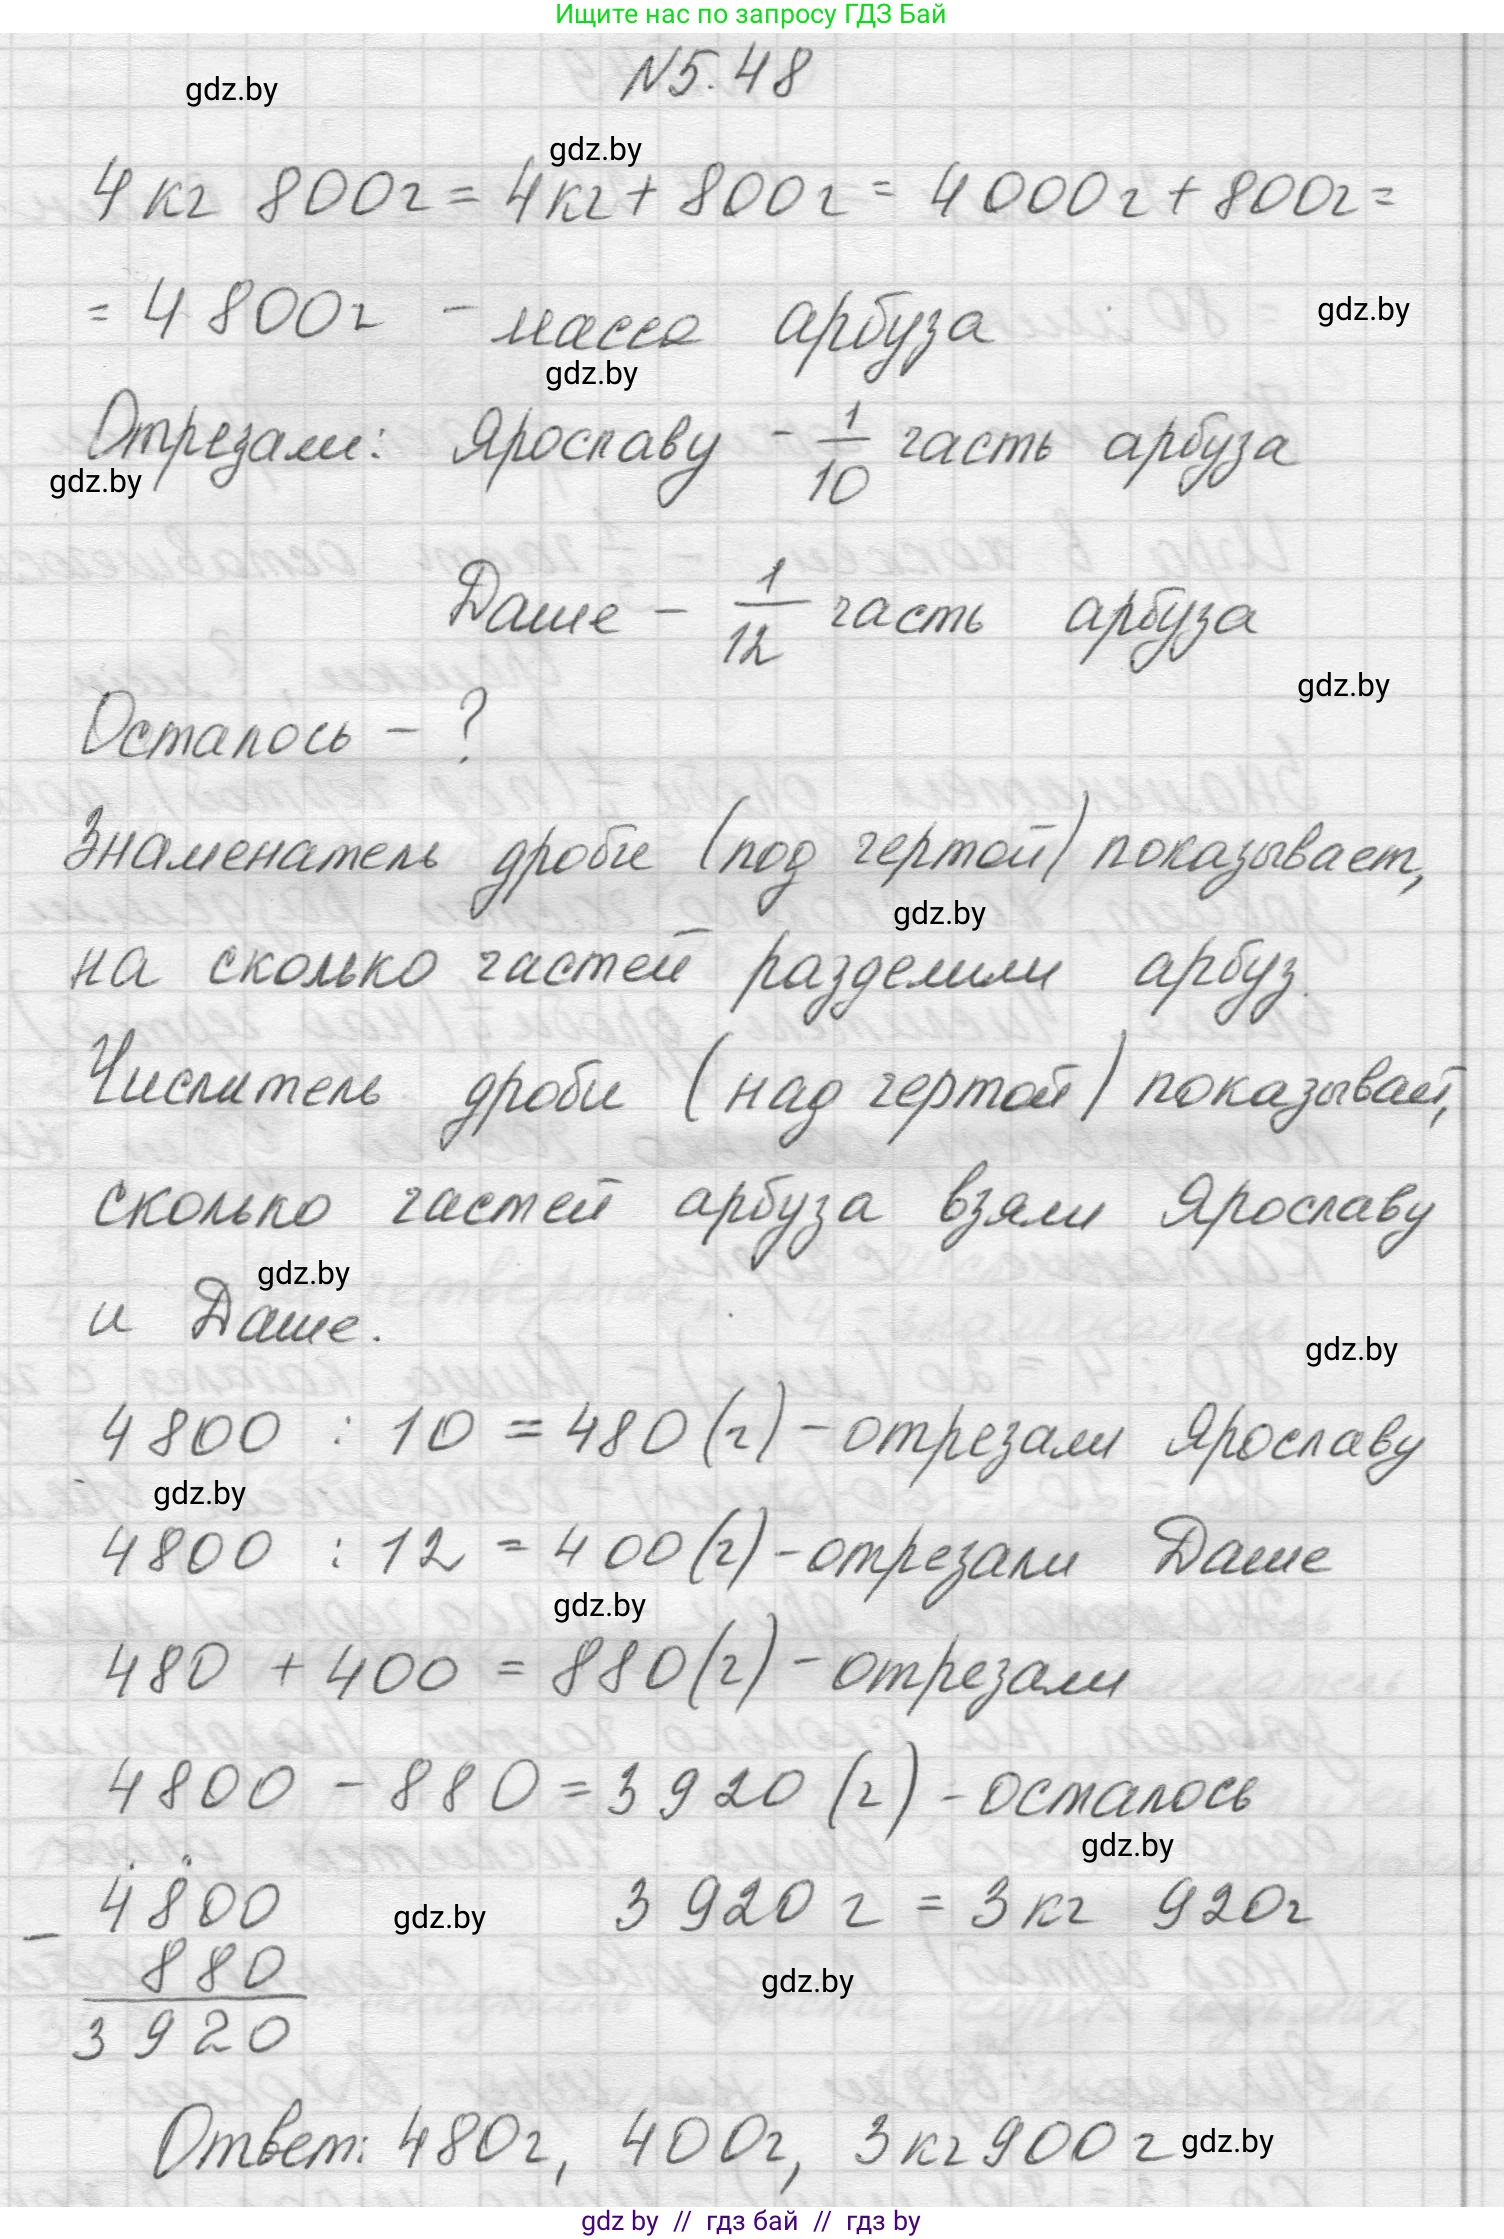 Ищите нас по запросу ГДЗ Бай
N5.48
gdz.by
gdz.by
4кг 800г = 4кг + 800г = 4000г + 800г =
= 4800г - масса арбуза
gdz.by
gdz.by
Отрезали: Ярославу - 1/10 часть арбуза
gdz.by
Даше - 1/12 часть арбуза
gdz.by
Осталось - ?
Знаменатель дроби (под чертой) показывает,
gdz.by
на сколько частей разделили арбуз.
Числитель дроби (над чертой) показывает,
сколько частей арбуза взяли Ярославу
gdz.by
и Даше.
gdz.by
4800 : 10 = 480 (г) - отрезали Ярославу
gdz.by
4800 : 12 = 400 (г) - отрезали Даше
gdz.by
480 + 400 = 880 (г) - отрезали
4800 - 880 = 3920 (г) - осталось
gdz.by
4800
gdz.by
3920 г = 3кг 920г
- 880
gdz.by
3920
Ответ: 480г, 400г, 3кг 900г
gdz.by
gdz.by // гдз бай // гдз by